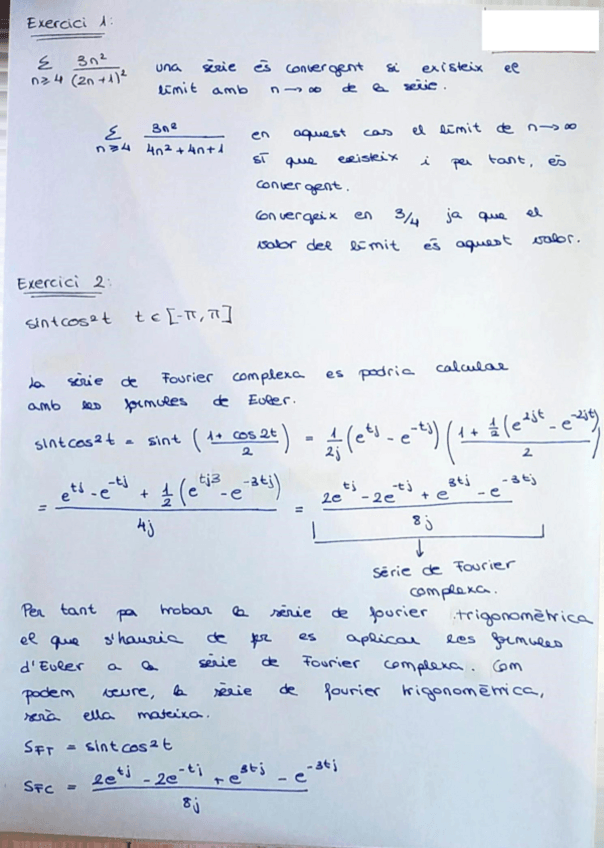 Exercici 1:
Σ n≥4 3n²/(2n+1)² una sèrie és convergent si existeix el
límit amb n→∞ de la sèrie.
Σ n≥4 3n²/4n²+4n+1 en aquest cas el límit de n→∞
sí que existeix i per tant, és
convergent.
Convergeix en 3/4 ja que el
valor del límit és aquest valor.
Exercici 2:
sintcos²t t ∈ [-π, π]
La sèrie de Fourier complexa es podria calcular
amb les fórmules de Euler.
sintcos²t = sint (1+cos2t / 2) = 1/2j (e^tj - e^-tj) (1 + 1/2 (e^2jt - e^-2jt) / 2)
= e^tj - e^-tj + 1/2 (e^tj3 - e^-3tj) / 4j = 2e^tj - 2e^-tj + e^3tj - e^-3tj / 8j
sèrie de Fourier
complexa.
Per tant pa trobar la sèrie de fourier trigonomètrica
el que s'hauria de fer es aplicar les fórmules
d'Euler a la sèrie de Fourier complexa. Com
podem veure, la sèrie de fourier trigonomètrica,
serà ella mateixa.
SFT = sintcos²t
SFC = 2e^tj - 2e^-tj + e^3tj - e^-3tj / 8j